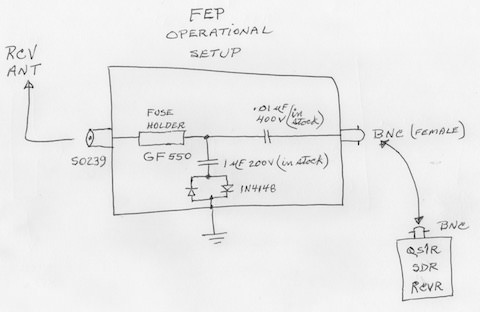 FEP
OPERATIONAL
SETUP
RCV
ANT
SO239
FUSE
HOLDER
GF 550
.01µF
400V (in stock)
1µF 200V (in stock)
1N4148
BNC (FEMALE)
BNC
QS1R
SDR
RCVR